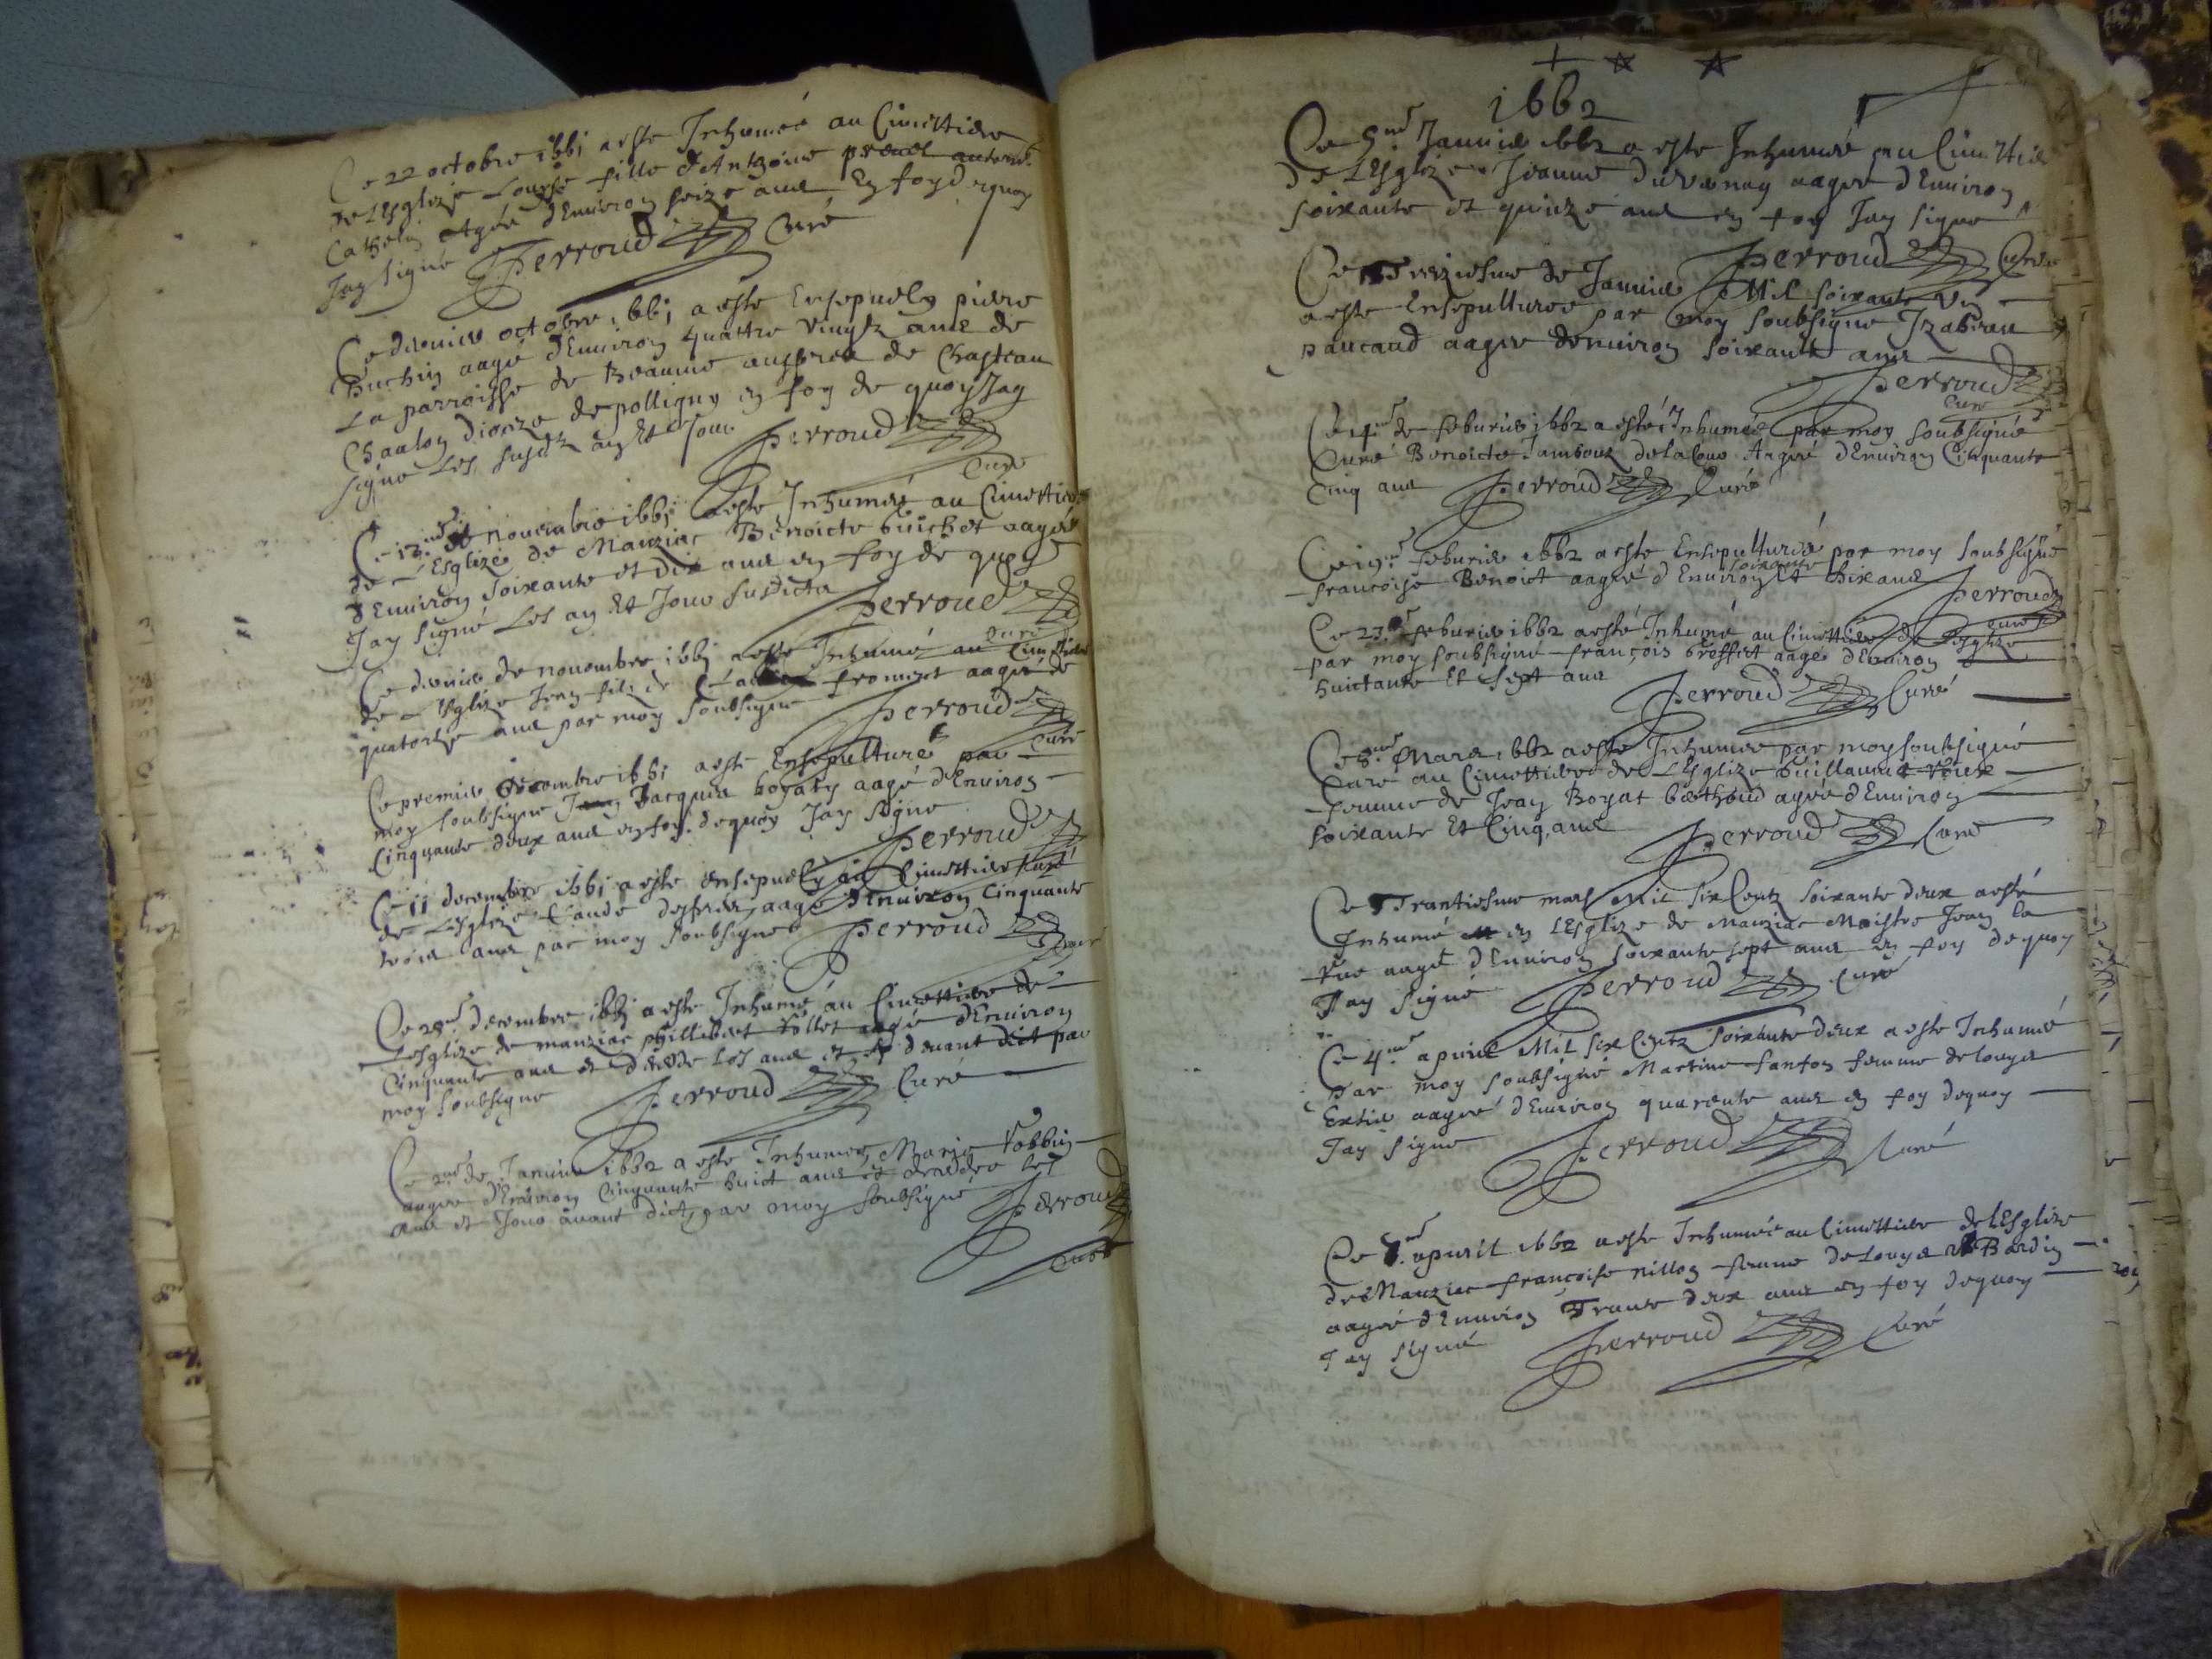 Ce 22 octobre 1661 a este Inhumée au Cimettiere
de LEsglize Louyse fille dAntoine preuel autrement
Cathelin Agée dEnuiron seize ans En foy dequoy
Jay signé Perroud Curé
Ce dernier octobre 1661 a este Ensepuely pierre
huchin aagé dEnuiron quattre vingtz ans de
La parroisse de Beaume aupres de Chasteau
Chaalon dioceze de polligny en foy de quoy Jay
signé Les susdtz an Et Jour Perroud
Curé
Ce 12me de nouembre 1661 a este Inhumée au Cimettiere
de LEsglize de Manziac Benoicte buichet aagée
dEnuiron soixante et dix ans en foy de quoy
Jay signé Les an Et Jour susdicts Perroud
Curé
Ce dernier de nouembre 1661 a este Inhumé au Cimettiere
de LEsglize Jean fils de froment aagé de
quatorse ans par moy soubsigné Perroud
Curé
Ce premier decembre 1661 a este Ensepulturé par
moy soubsigné Jacques boyaty aagé dEnuiron
Cinquante deux ans en foy dequoy Jay signé
Perroud
Curé
Ce 11 decembre 1661 a este ensepuely au Cimettiere
de LEsglize Claude aagé dEnuiron Cinquante
trois ans par moy soubsigné Perroud
Curé
Ce 28me decembre 1661 a este Inhumé au Cimettiere de
LEsglize de manziac phillibert vollet aagé dEnuiron
Cinquante ans et Les ans et deuant dict par
moy soubsigné Perroud Curé
Ce 2me de Januier 1662 a este Inhumee Marie Robbin
aagee dEnuiron Cinquante huict ans et Les
ans et Jour auant dict par moy soubsigné Perroud
Curé
1662
Ce 5me Januier 1662 a este Inhumée au Cimettiere
de LEsglize Jeanne duvernay aagee dEnuiron
soixante et quinze ans en foy Jay signé
Perroud Curé
Ce Treziesme de Januier Mil soixante
a este Ensepulturee par moy soubsigné Izabeau
paucaud aagee denuiron soixante ans
Perroud
Curé
Ce 4me de feburier 1662 a esté Inhumée par moy soubsigné
Curé Benoicte Aagée dEnuiron Cinquante
Cinq ans Perroud Curé
Ce 19me feburier 1662 a este Ensepulturée par moy soubsigné
francoise Benoict aagée dEnuiron soixante Et six ans
Perroud
Curé
Ce 23me feburier 1662 a esté Inhumé au Cimettiere de LEsglize
par moy soubsigné françois broffet aagé dEnuiron
huictante Et sept ans Perroud Curé
Ce 8me Mars 1662 a este Inhumee par moy soubsigné
Curé au Cimettiere de LEsglize Guillauma
femme de Jean Boyat berthoud agée dEnuiron
soixante Et Cinq ans Perroud Curé
Ce Trantiesme mars Mil six Centz soixante deux a esté
Inhumé en LEsglize de Manziac Maistre Jean la
rue aagé dEnuiron soixante sept ans en foy dequoy
Jay signé Perroud Curé
Ce 4me apuril Mil six Centz soixante deux a este Inhumée
par moy soubsigné Martine fanton femme de Louys
Exties aagée dEnuiron quarante ans en foy dequoy
Jay signé Perroud Curé
Ce 7me apuril 1662 a este Inhumée au Cimettiere de LEsglize
de Manziac françoise nillon femme de Louys Bardin
aagée dEnuiron Trante deux ans en foy dequoy
Jay signé Perroud Curé